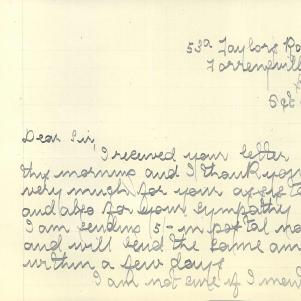 53a Taylors Ro
Torrensvill
Dear Sir,
I received your letter
this morning and I thank you
very much for your
and also for your sympathy
I am sending 5- in postal no
and will send the same am
within a few days
I am not sure if I